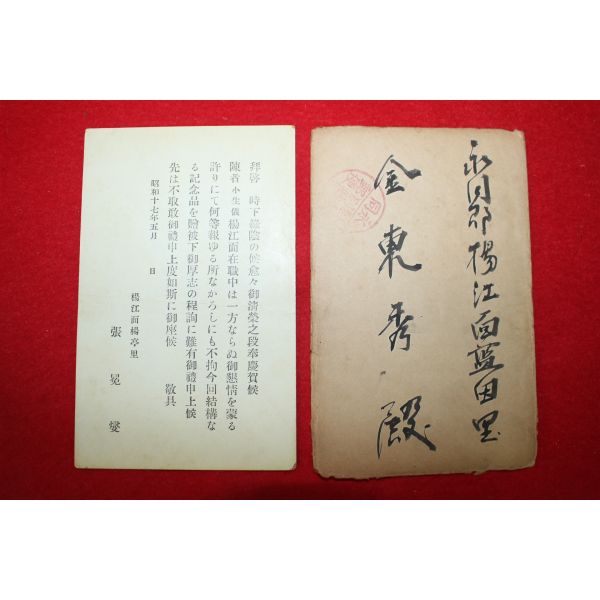 拜啓 時下綠陰の候愈々御淸榮之段奉慶賀候
陳者小生儀楊江面在職中は一方ならぬ御懇情を蒙る
許りにて何等報ゆる所なかりしにも不拘今回結構な
る記念品を贈被下御厚志の程誠に難有御禮申上候
先は不取敢御禮申上度如斯に御座候 敬具
昭和十七年五月 日
楊江面楊亭里
張冕燮
永同郡楊江面藍田里
金東秀殿